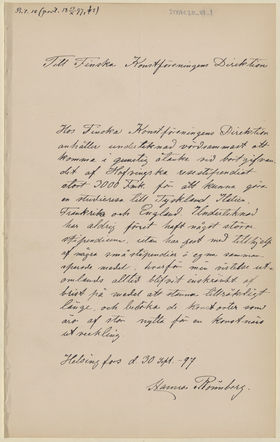 Till Finska Konstföreningens Direktion
Hos Finska Konstföreningens Direktion
anhåller undertecknad vördsammast att
komma i gunstig åtanke vid bortgifvan-
det af Hofningska resestipendiet
stort 3000 Fmk. för att kunna göra
en studieresa till Tyskland, Italien,
Frankrike och England. Undertecknad
har aldrig förut haft något större
stipendium, utan har rest med tillhjelp
af några små stipendier o egna samman-
sparade medel, hvarför min vistelse ut-
omlands alltid blifvit inskränkt af
brist på medel att stanna tillräckligt
länge, och besöka de konstorter som
äro af stor nytta för en konstnärs
utveckling.
Helsingfors d. 30 Sept. -97
Hanna Rönnberg.